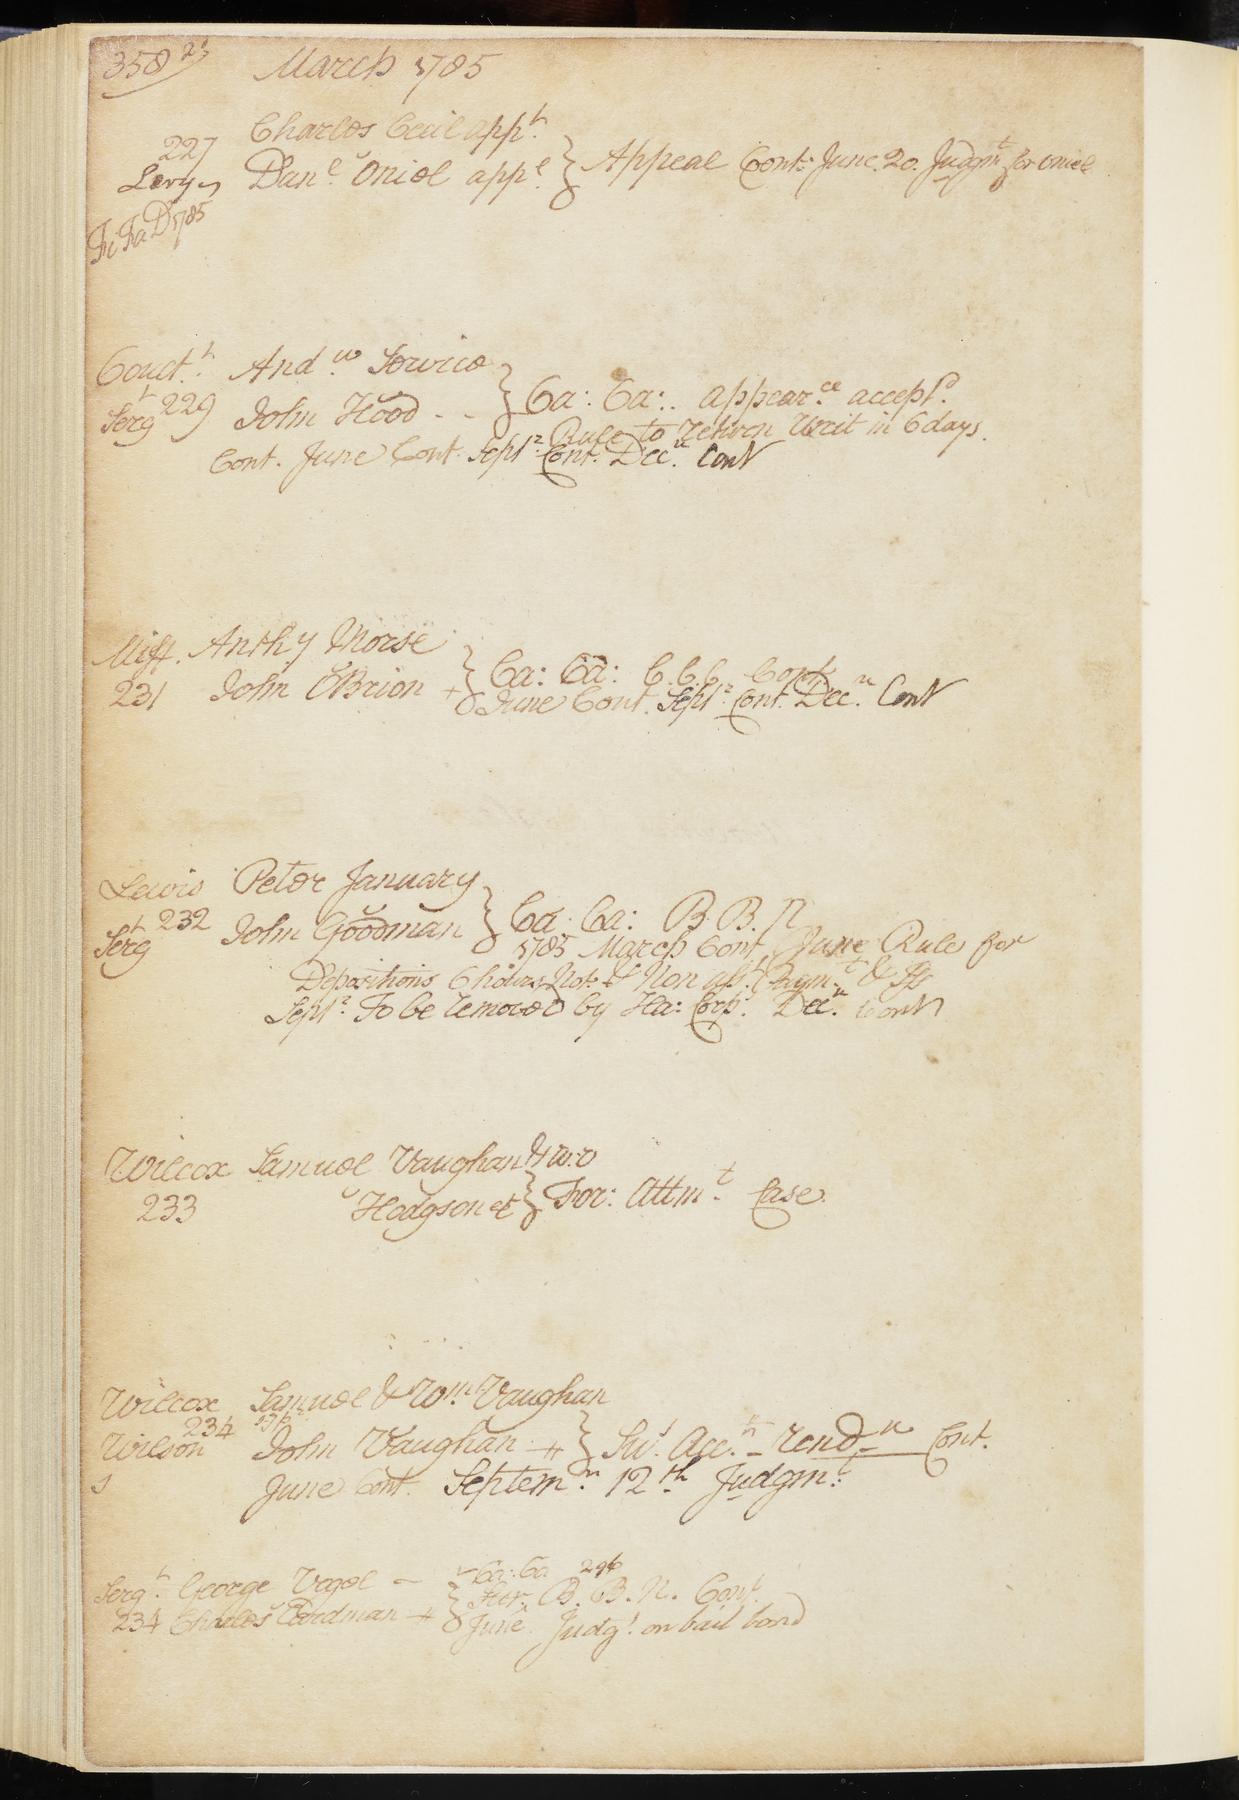 358 March 1785
Charles Cecil appt.
227
Levy Danl. Oniel appe. } Appeal Cont: June 20. Judgmt. for Oniel
Fi Fa D 1785
Conct. Andw.
Sergt 229 John Hood - - } Ca: Ca: appearce. accept.
Rule to return Writ in 6 days.
Cont. June Cont. Sepr. Cont. Decr. Cont
Miff. Anthy Morse
231 John OBrion + } Ca: Ca: C.C.C. Cont.
June Cont. Sepr. Cont. Decr. Cont
Lewis Peter January
Sergt 232 John Goodman } Ca: Ca: B. B. n
1785 March Cont. June Rule for
Depositions 6 hours Not. & Non Paymt. &
Sepr. To be removed by Ha: Corp. Decr. Cont
Wilcox Samuel Vaughan & uxo
233 Hodgson et } For: Attmt. Case.
Wilcox Samuel & Wm. Vaughan
234
Wilson John Vaughan } Sur Acct. rendr. Cont.
s June Cont. Septemr. 12th Judgmt.
Sergt. George Vogel — Ca: Ca
234 Charles Erdman } B. B. N. Cont.
June Judgt. on bail bond